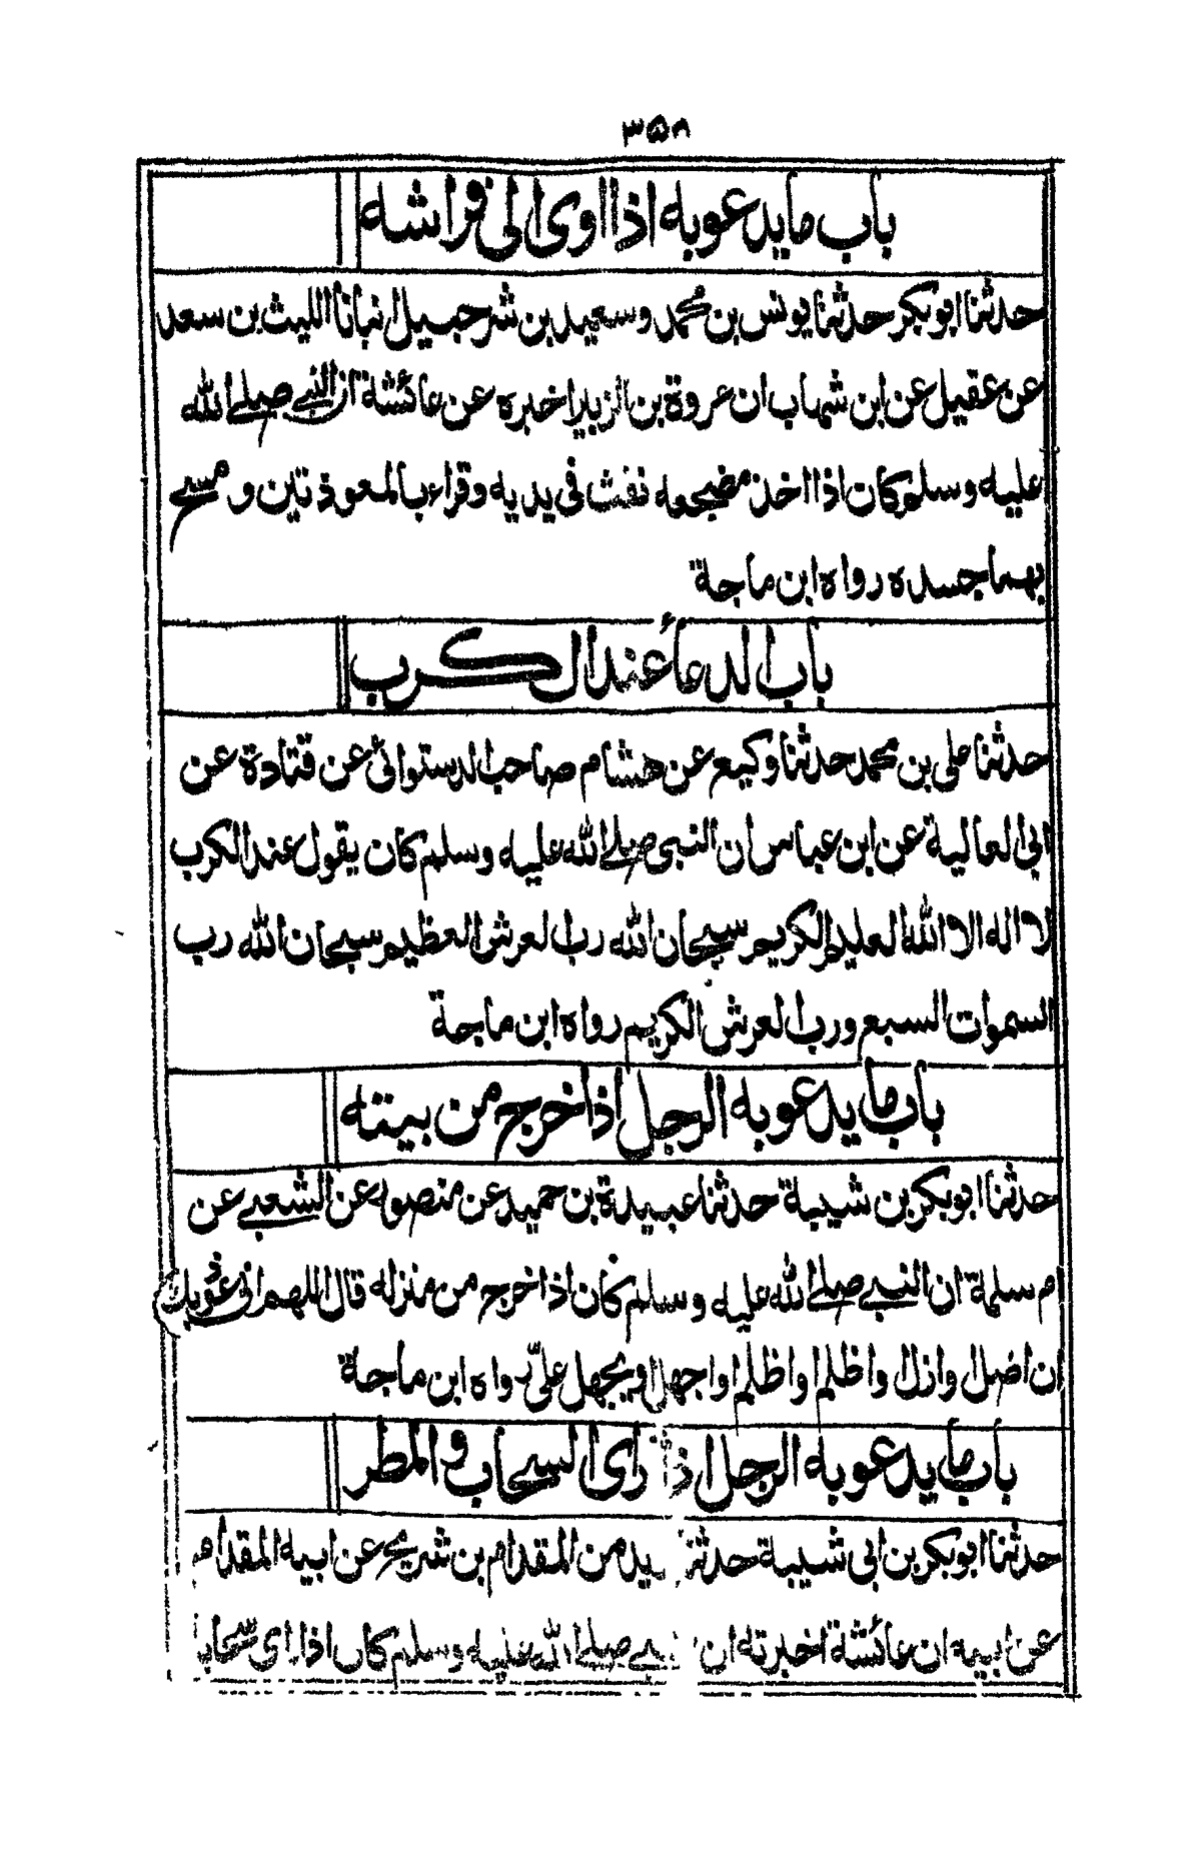 ۳۵۸
باب ما يدعو به اذا اوى الى فراشه
حدثنا ابوبكر حدثنا يونس بن محمد وسعيد بن شرحبيل انبانا الليث بن سعد
عن عقيل عن ابن شهاب ان عروة بن الزبير اخبره عن عائشة ان النبي صلى الله
عليه وسلم كان اذا اخذ مضجعه نفث فى يديه وقراء بالمعوذتين و مسح
بهما جسده رواه ابن ماجة
باب الدعاء عند الكرب
حدثنا على بن محمد حدثنا وكيع عن هشام صاحب الدستوائى عن قتادة عن
ابى العالية عن ابن عباس ان النبى صلى الله عليه وسلم كان يقول عند الكرب
لا اله الا الله العليم الكريم سبحان الله رب العرش العظيم سبحان الله رب
السموات السبع ورب العرش الكريم رواه ابن ماجة
باب ما يدعو به الرجل اذا خرج من بيته
حدثنا ابوبكر بن شيبة حدثنا عبيدة بن حميد عن منصور عن الشعبى عن
ام سلمة ان النبى صلى الله عليه وسلم كان اذا خرج من منزله قال اللهم انى اعوذ بك
ان اضل وازل واظلم او اظلم او اجهل او يجهل على رواه ابن ماجة
باب ما يدعو به الرجل اذا راى السحاب والمطر
حدثنا ابوبكر بن ابى شيبة حدثنا من المقدام بن شريح عن ابيه المقدام
عن ابيه ان عائشة اخبرته ان صلى الله عليه وسلم كان اذا راى سحابا